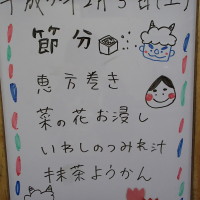 節分
恵方巻き
菜の花お浸し
いわしのつみれ汁
抹茶ようかん